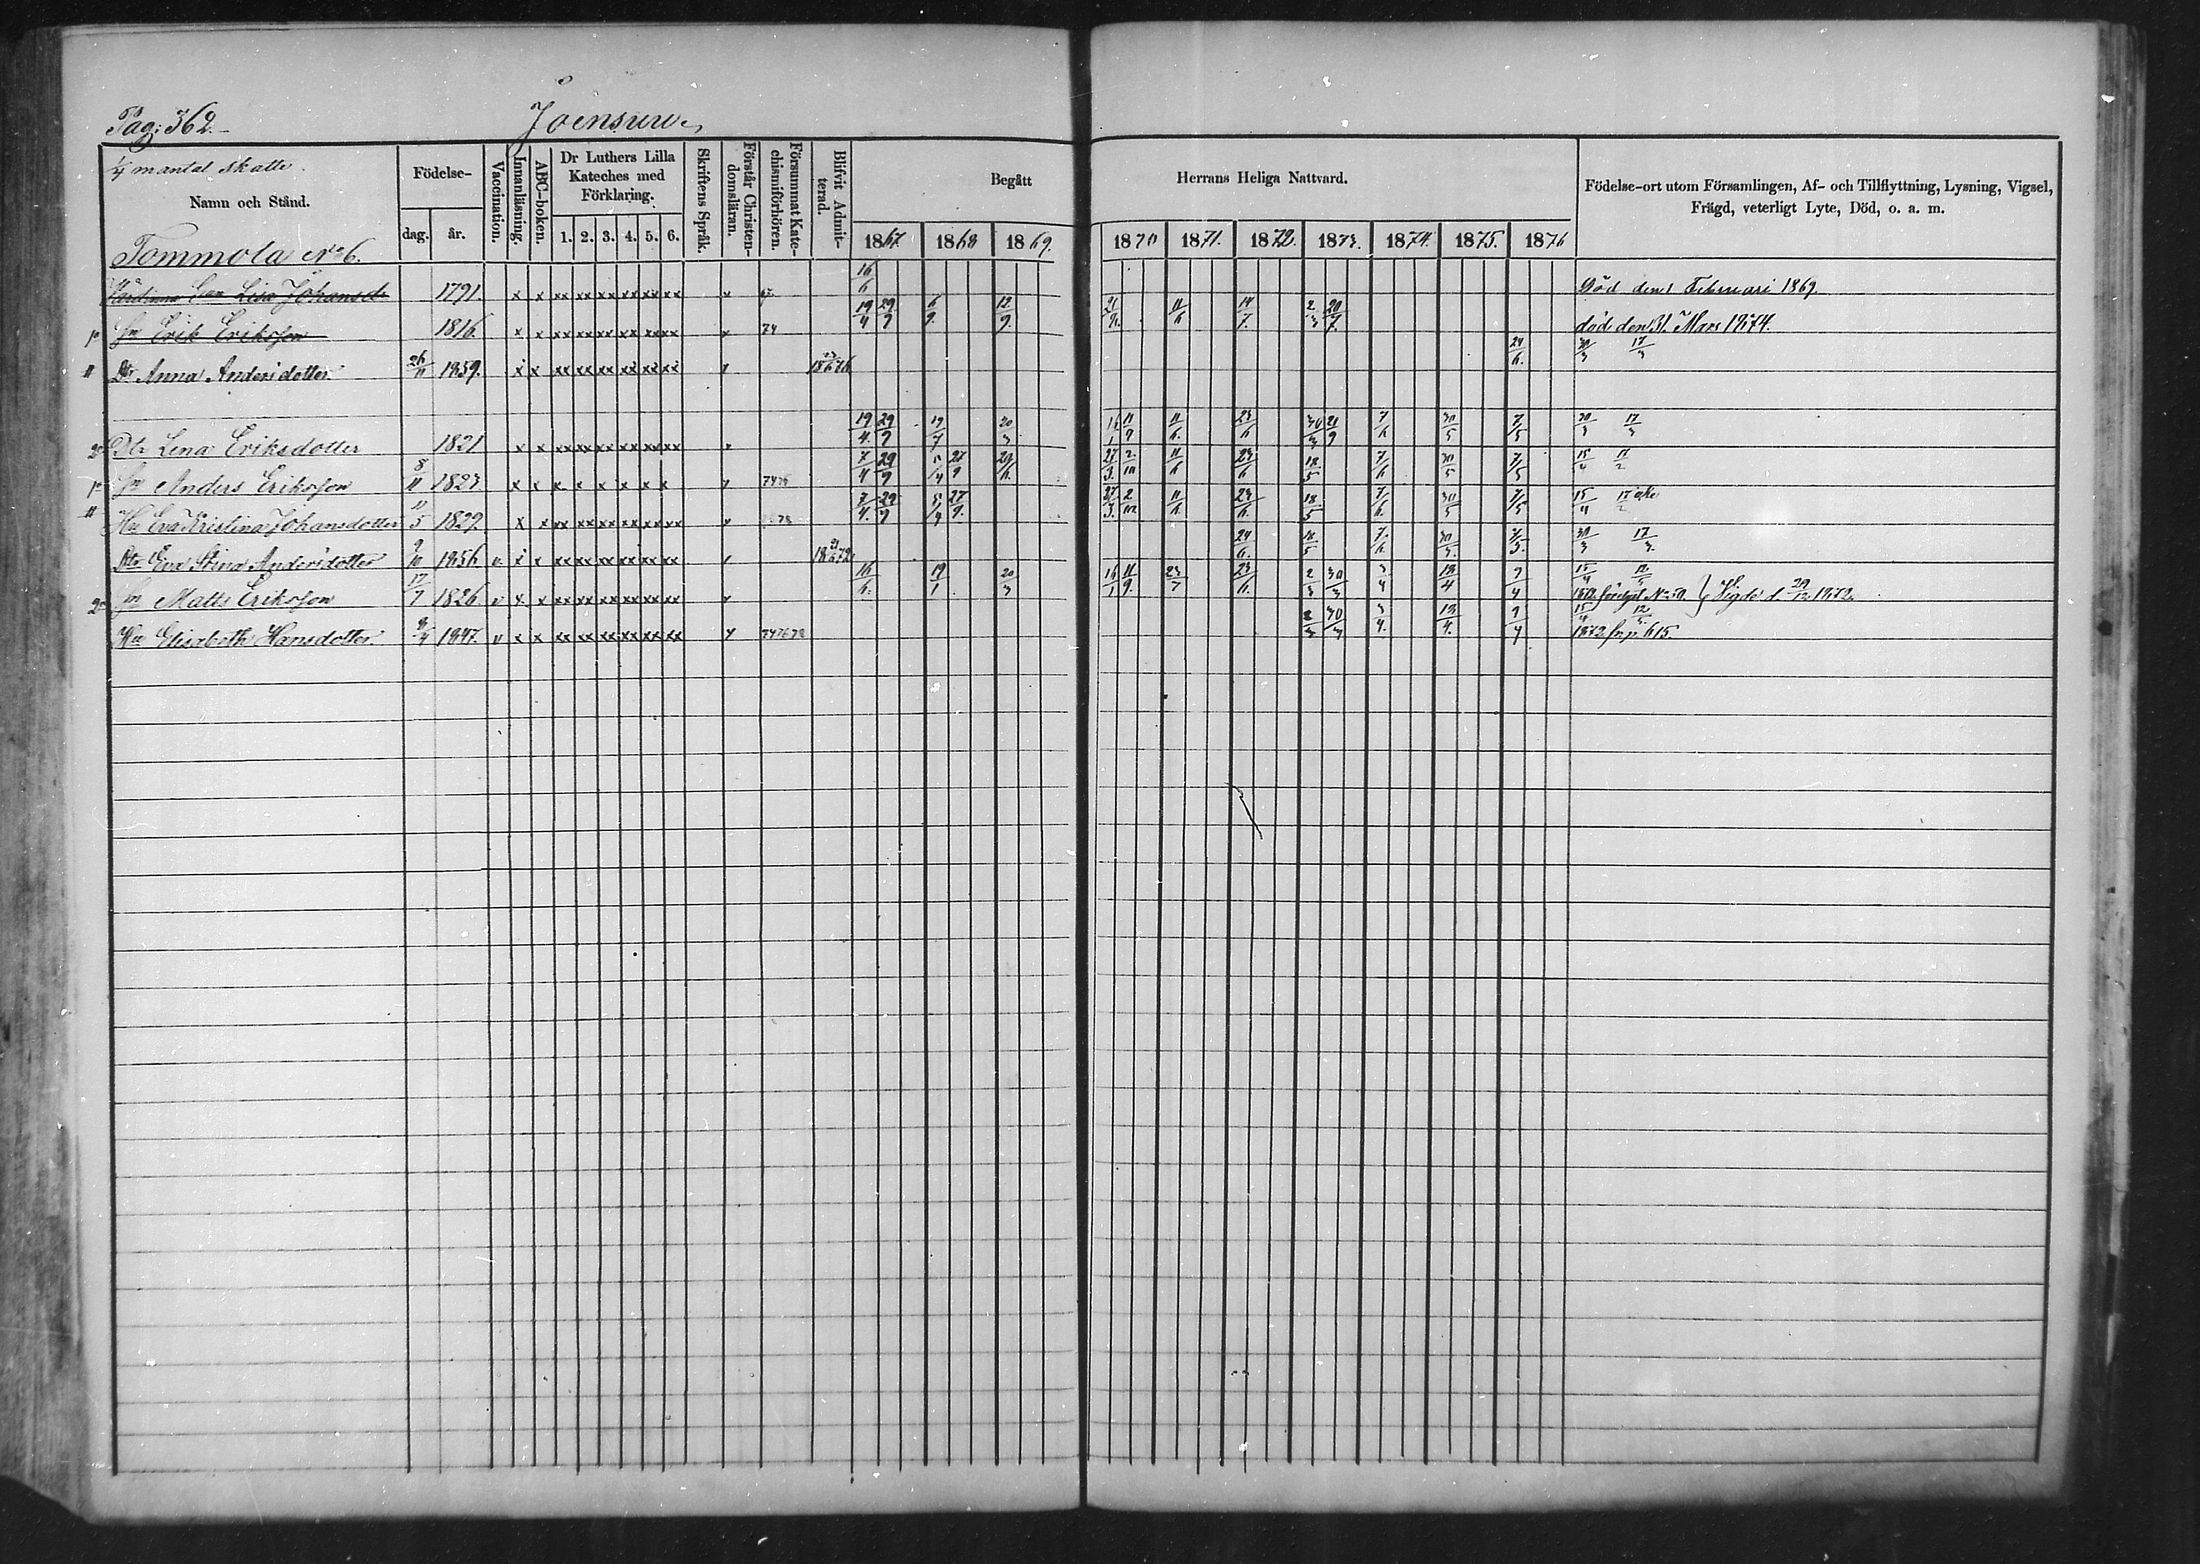 Pag: 362.
Joensuu
1/4 mantal skatte.
Namn och Stånd.
Födelse-
dag.
år.
Vaccination.
Innanläsning.
ABC-boken.
Dr Luthers Lilla Kateches med Förklaring.
1. 2. 3. 4. 5. 6.
Skriftens Språk.
Förstår Christendomsläran.
Försummat Katechismiförhören.
Blifvit Admitterad.
Begått Herrans Heliga Nattvard.
1867. 1868 1869. 1870 1871. 1872. 1873. 1874. 1875. 1876
Födelse-ort utom Församlingen, Af- och Tillflyttning, Lysning, Vigsel,
Frägd, veterligt Lyte, Död, o. a. m.
Tommola No 6.
Lisa Johansdr 1791. x x xx xx xx xx xx xx 16/6 Död den 1 Februari 1869
Sn Erik Eriksson 1816. x x xx xx xx xx xx xx 74 19/4 29/9 6/9. 12/9. 11/6 14/7. 2/3 20/7 död den 31 Mars 1874.
Dtr Anna Andersdotter 26/11 1859. x x xx xx xx xx xx xx 24/6. 30/3 17/3
Dtr Lena Eriksdotter 1821 x x xx xx xx xx xx xx 19/4. 29/9 19/7 20/3 16/1 11/9 11/6. 23/6 30/3 21/9 7/6 30/5 7/5 30/3 17/3
Sn Anders Eriksson 8/11 1823. x x x x x x x x 7476 7/4 29/9 5/4 27/9 27/3. 2/10 11/6 23/6 18/5 7/6 30/5 7/5 15/4
Hu Eva Kristina Johansdotter 11/5 1829. x x xx xx xx xx xx xx 7/4. 29/9 5/4 27/9. 27/3. 2/10 11/6 23/6. 18/5 7/6. 30/5 7/5 15/4
Dtr Eva Stina Andersdotter 9/10 1856. v. x x xx xx xx xx xx xx 24/6. 18/5 7/6 30/5. 7/5. 30/3 17/3.
Sn Matts Eriksson 17/7 1826. v x x xx xx xx xx xx xx 16/6. 19/1 20/3 16/1 11/9. 23/7 23/6. 2/3 30/3 3/4 18/4 9/4 15/4 12/5 Vigde d. 29/12 1872.
Hu Elisabeth Hansdotter. 9/4 1847. v x x xx xx xx xx xx xx 747678 2/3 30/3 3/4. 18/4. 9/4 15/4 12/5. 1872 fr. p. 615.